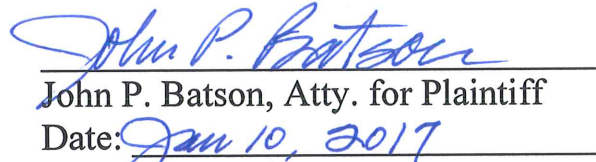 John P. Batson
John P. Batson, Atty. for Plaintiff
Date: Jan 10, 2017